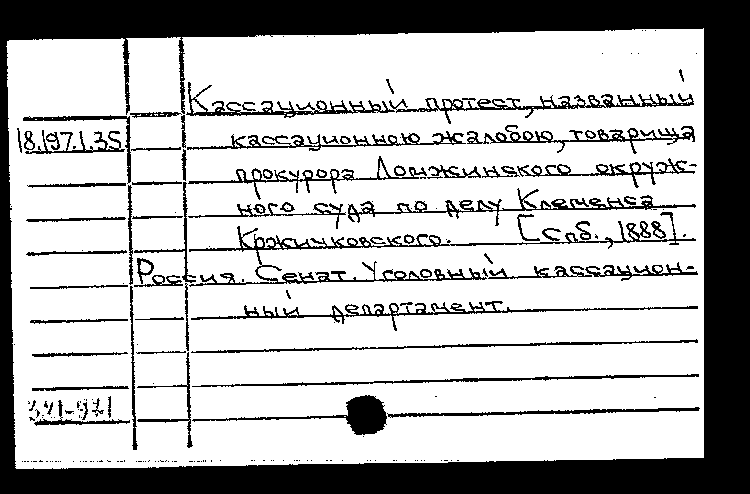 Кассационный протест, названный
18.197.1.35. кассационною жалобою, товарища
прокурора Ломжинского окруж-
ного суда по делу Клеменса
Кржичковского. [Спб., 1888].
Россия. Сенат. Уголовный кассацион-
ный департамент.